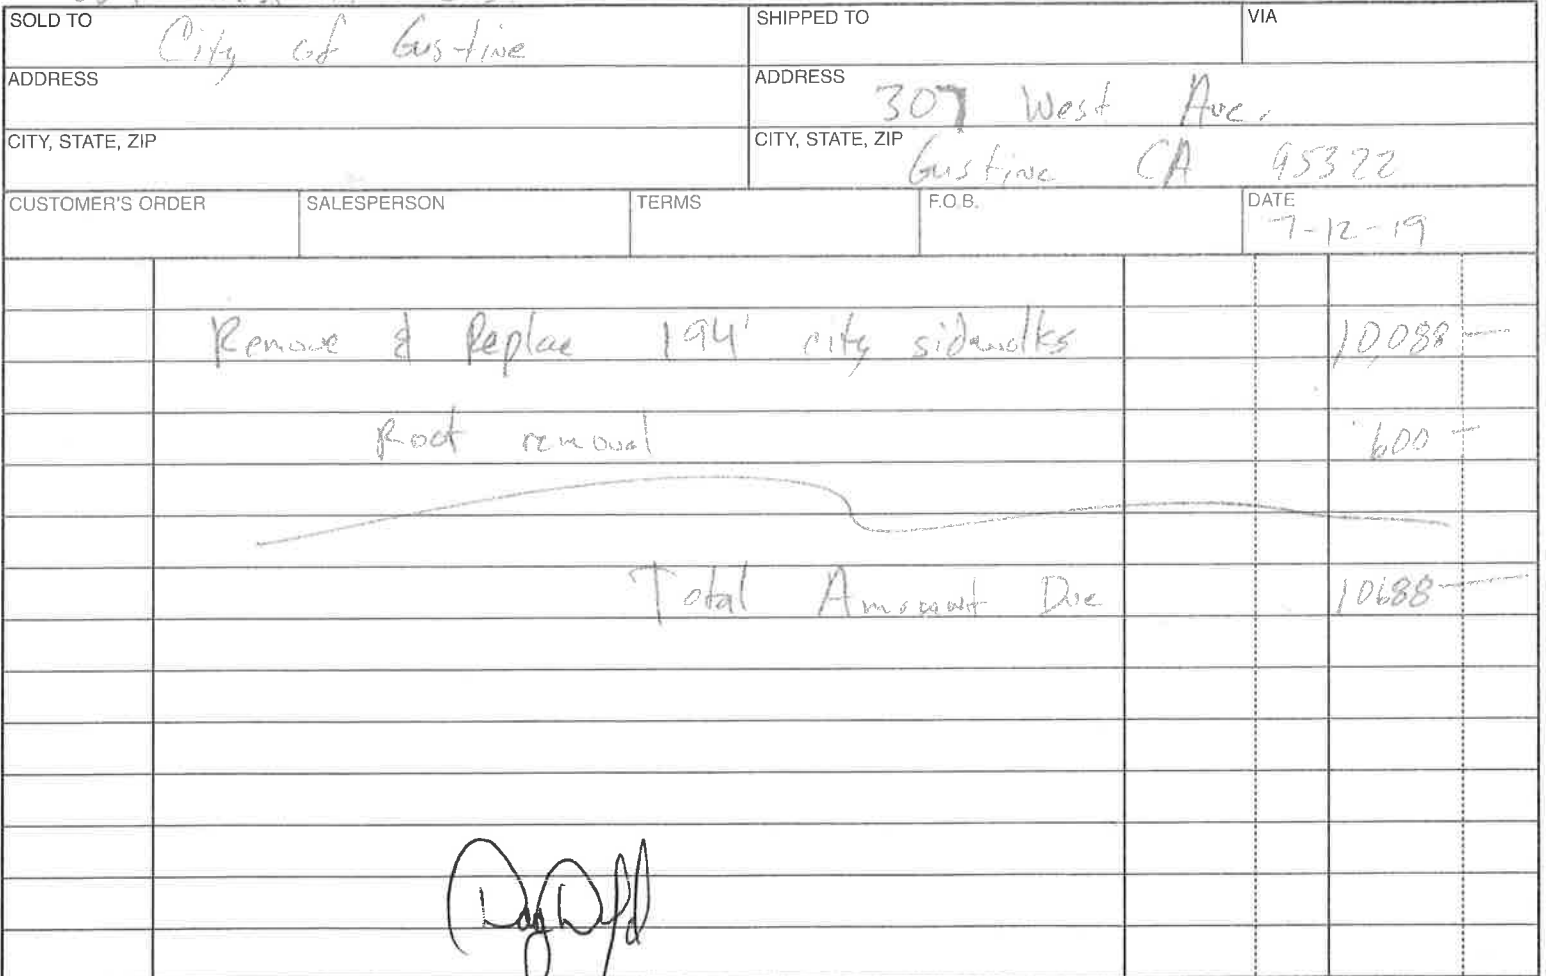 SOLD TO City of Gustine
SHIPPED TO
VIA
ADDRESS
ADDRESS 307 West Ave.
CITY, STATE, ZIP
CITY, STATE, ZIP Gustine CA 95322
CUSTOMER'S ORDER
SALESPERSON
TERMS
F.O.B.
DATE 7-12-19
Remove & Replae 194' city sidewalks 10,088 —
Root removal 600 —
Total Amount Due 10688 —